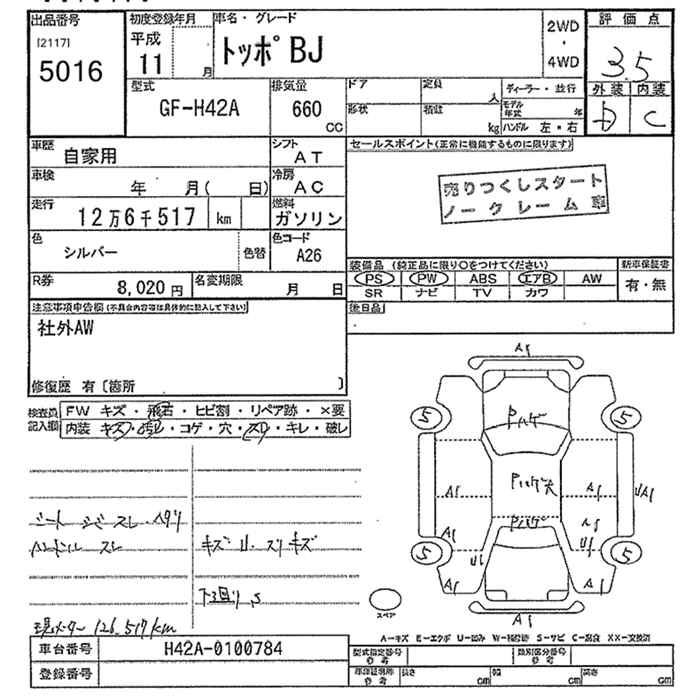 出品番号
[2117]
5016
初度登録年月
平成
11 月
車名・グレード
トッポBJ
2WD
・
4WD
評価点
3.5
外装 内装
D C
型式
GF-H42A
排気量
660
CC
ドア 定員 人
形状 積載 kg
ディーラー・並行
モデル年式 年
ハンドル 左・右
車歴
自家用
シフト
AT
車検
年 月( 日)
冷房
AC
走行
12万6千517 km
燃料
ガソリン
色
シルバー
色替
色コード
A26
R券
8,020円
名変期限
月 日
セールスポイント(正常に機能するものに限ります)
売りつくしスタート
ノークレーム
装備品 (純正品に限り○をつけてください)
PS PW ABS エアB AW
SR ナビ TV カワ
新車保証書
有・無
後日品
注意事項申告欄(不具合内容等は具体的に記入して下さい)
社外AW
修復歴 有〔箇所 〕
検査員記入欄
FW キズ・飛石・ヒビ割・リペア跡・×要
内装 キズ・汚レ・コゲ・穴・スレ・キレ・破レ
シート シミ スレ ヘタリ
ハンドル スレ
キズ U スリキズ
下回り S
現メーター 126,517km
A1
Pハゲ
5 5
Pハゲ大
A1 A1 UA1
Pハゲ
A1 A1
U1 U1
5 5
A1 A1
A1
スペア
A-キズ E-エクボ U-凹み W-補修跡 S-サビ C-腐食 XX-交換済
車台番号
H42A-0100784
登録番号
型式指定番号
参考
類別区分番号
参考
車庫証明用
参考
長さ cm
幅 cm
高さ cm